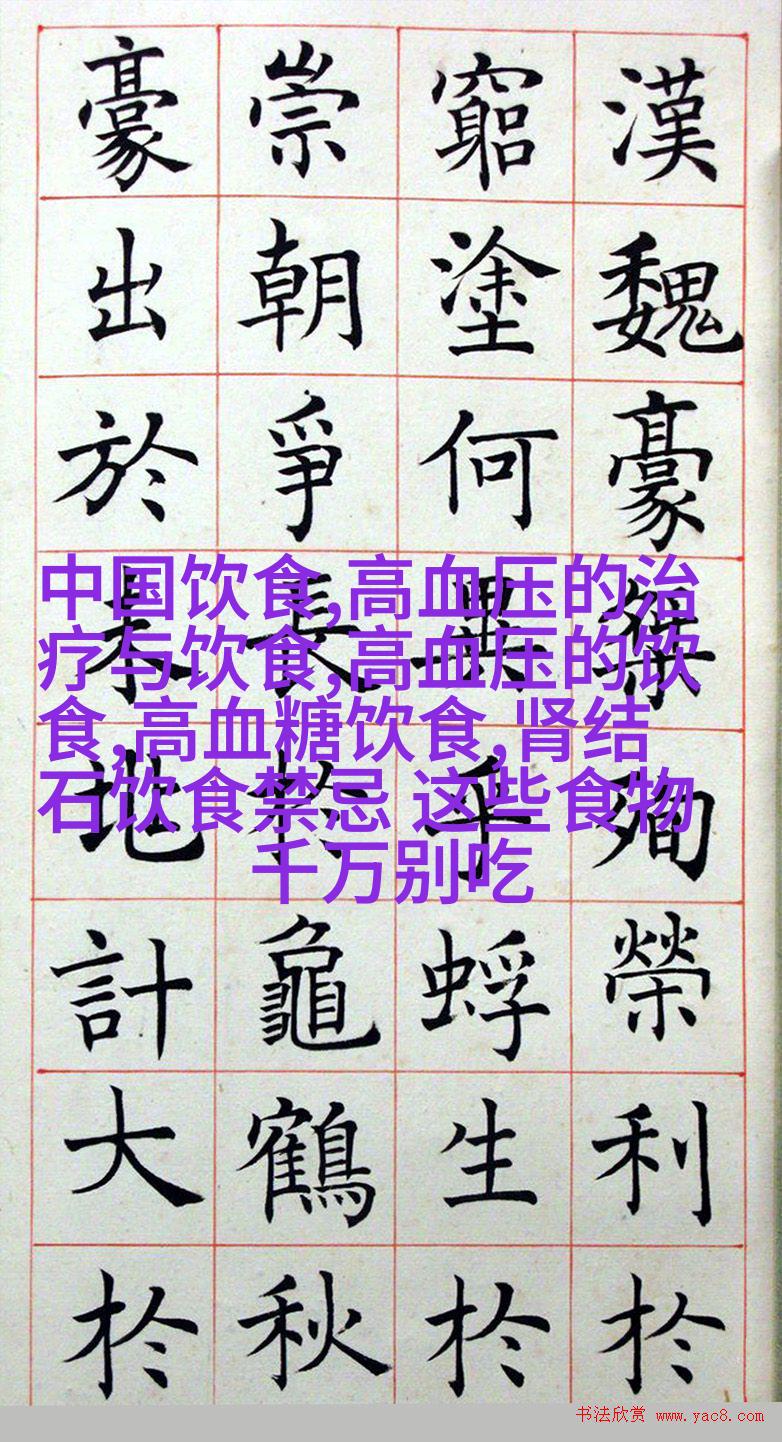 漢魏豪桀殉榮利於
窮塗何異乎蜉生於
崇朝爭長於龜鶴秋
豪出於地計大於
中国饮食,高血压的治
疗与饮食,高血压的饮
食,高血糖饮食,肾结
石饮食禁忌 这些食物
千万别吃
书法欣赏 www.yac8.com